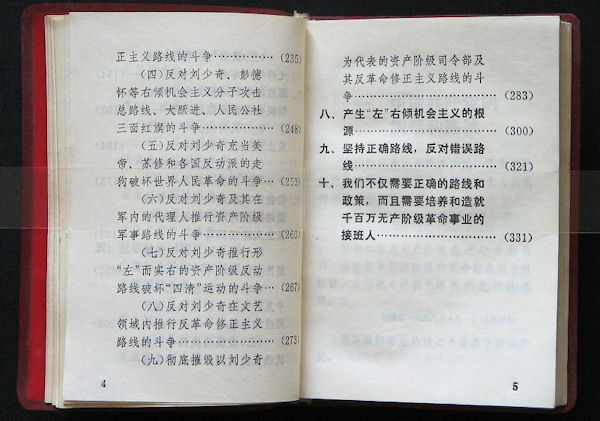 正主义路线的斗争……………(235)
(四)反对刘少奇、彭德
怀等右倾机会主义分子攻击
总路线、大跃进、人民公社
三面红旗的斗争……………(248)
(五)反对刘少奇充当美
帝、苏修和各国反动派的走
狗破坏世界人民革命的斗争…(253)
(六)反对刘少奇及其在
军内的代理人推行资产阶级
军事路线的斗争……………(260)
(七)反对刘少奇推行形
“左”而实右的资产阶级反动
路线破坏“四清”运动的斗争…(267)
(八)反对刘少奇在文艺
领域内推行反革命修正主义
路线的斗争…………………(273)
(九)彻底摧毁以刘少奇
4
为代表的资产阶级司令部及
其反革命修正主义路线的斗
争……………………………(283)
八、产生“左”右倾机会主义的根
源……………………………(300)
九、坚持正确路线，反对错误路
线……………………………(321)
十、我们不仅需要正确的路线和
政策，而且需要培养和造就
千百万无产阶级革命事业的
接班人………………………(331)
5